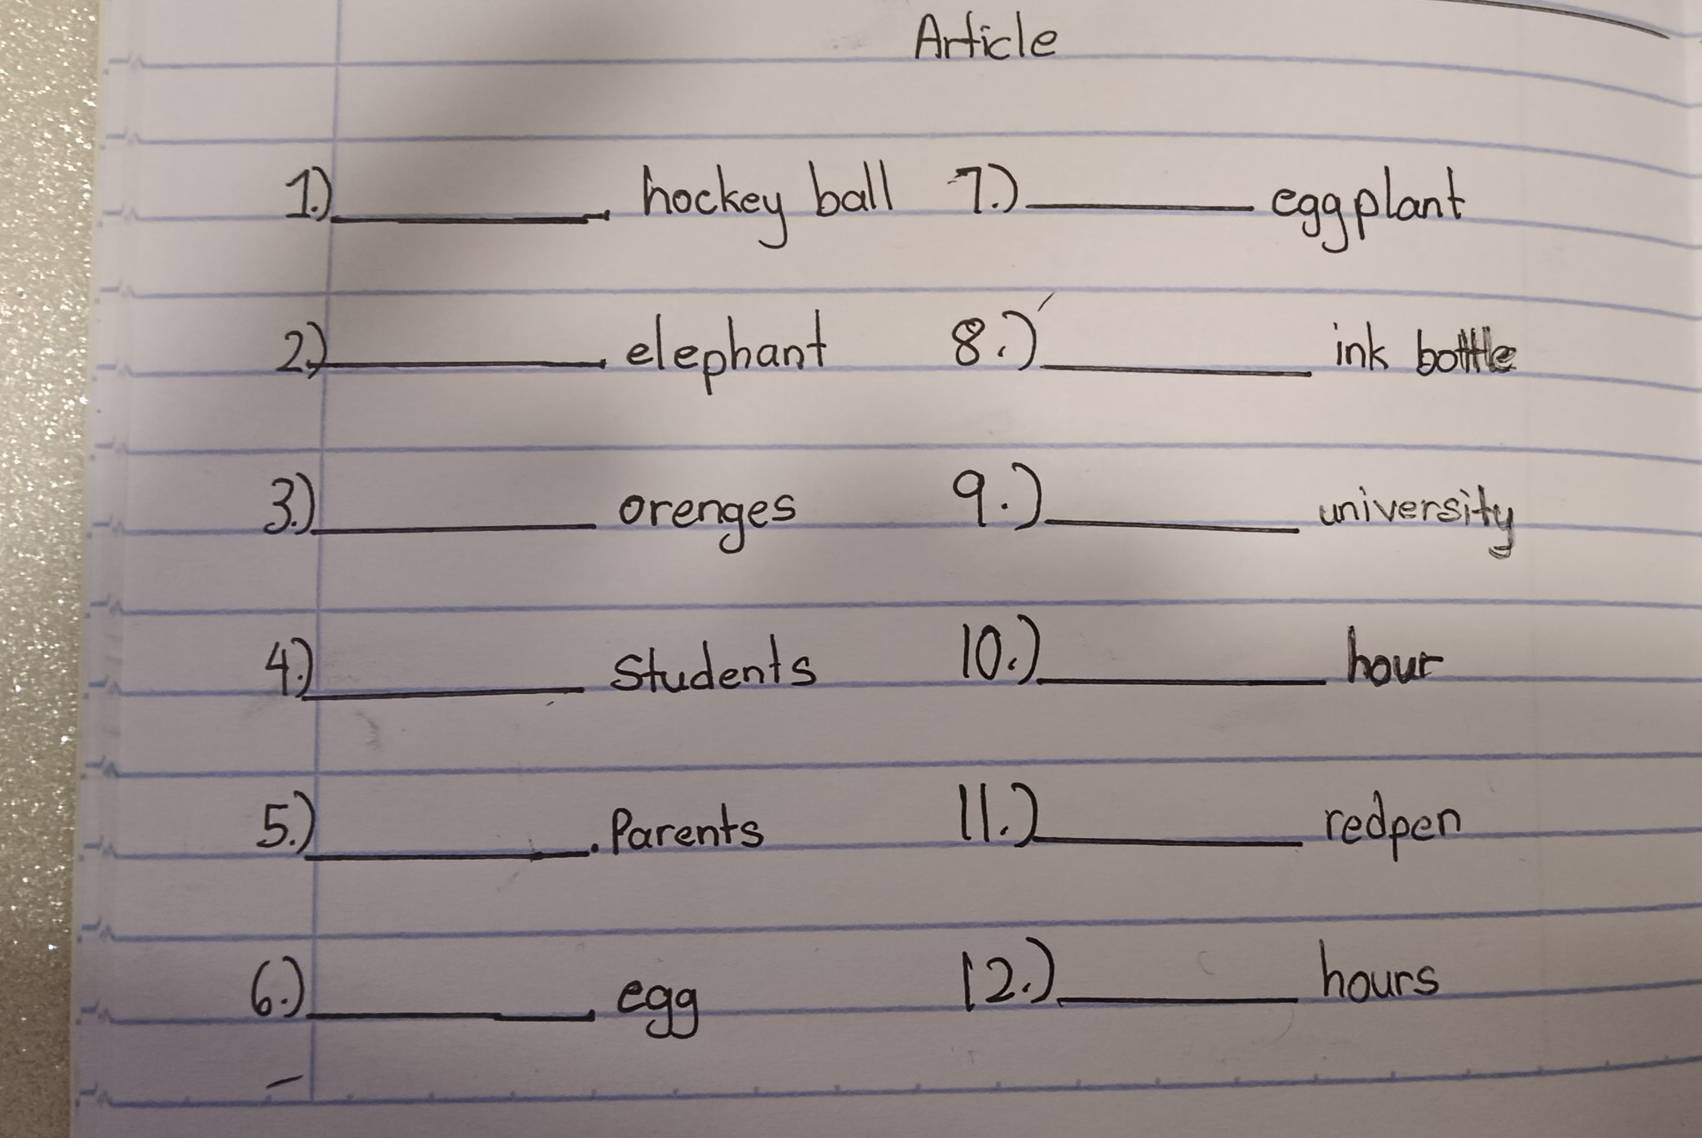 Article
1.) ________ hockey ball 7.) ________ eggplant
2.) ________ elephant 8.) ________ ink bottle
3.) ________ orenges 9.) ________ university
4.) ________ students 10.) ________ hour
5.) ________. Parents 11.) ________ redpen
6.) ________ egg 12.) ________ hours